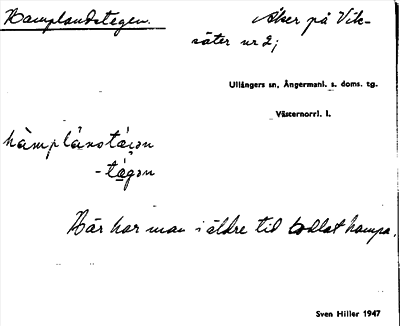 Hamplandstegen.
Åker på Vik-
säter nr 2;
Ullångers sn, Ångermanl. s. doms. tg.
Västernorrl. l.
hàmplánstágən
-tágən
Här har man i äldre tid odlat hampa.
Sven Hiller 1947